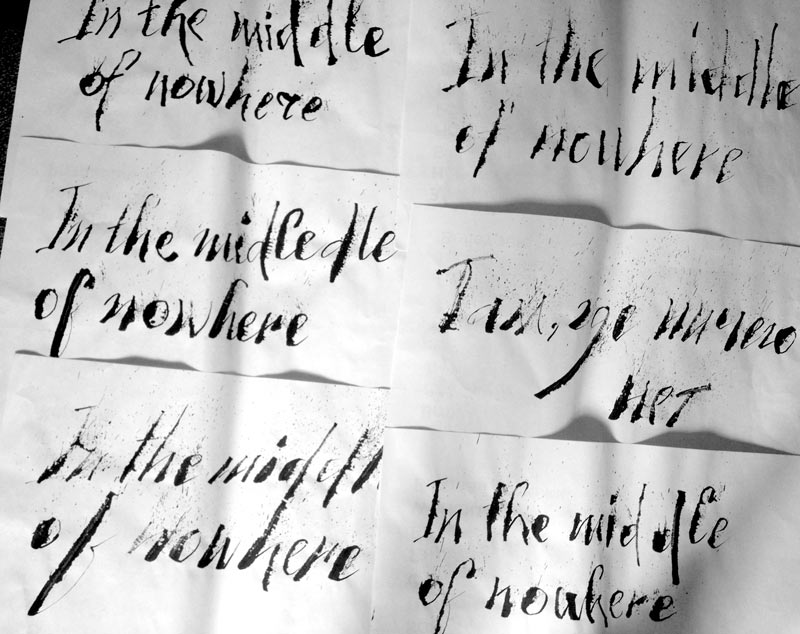 In the middle
of nowhere
In the midledle
of nowhere
In the middl
of nowhere
In the middle
of nowhere
Там, где ничего
нет
In the middle
of nowhere